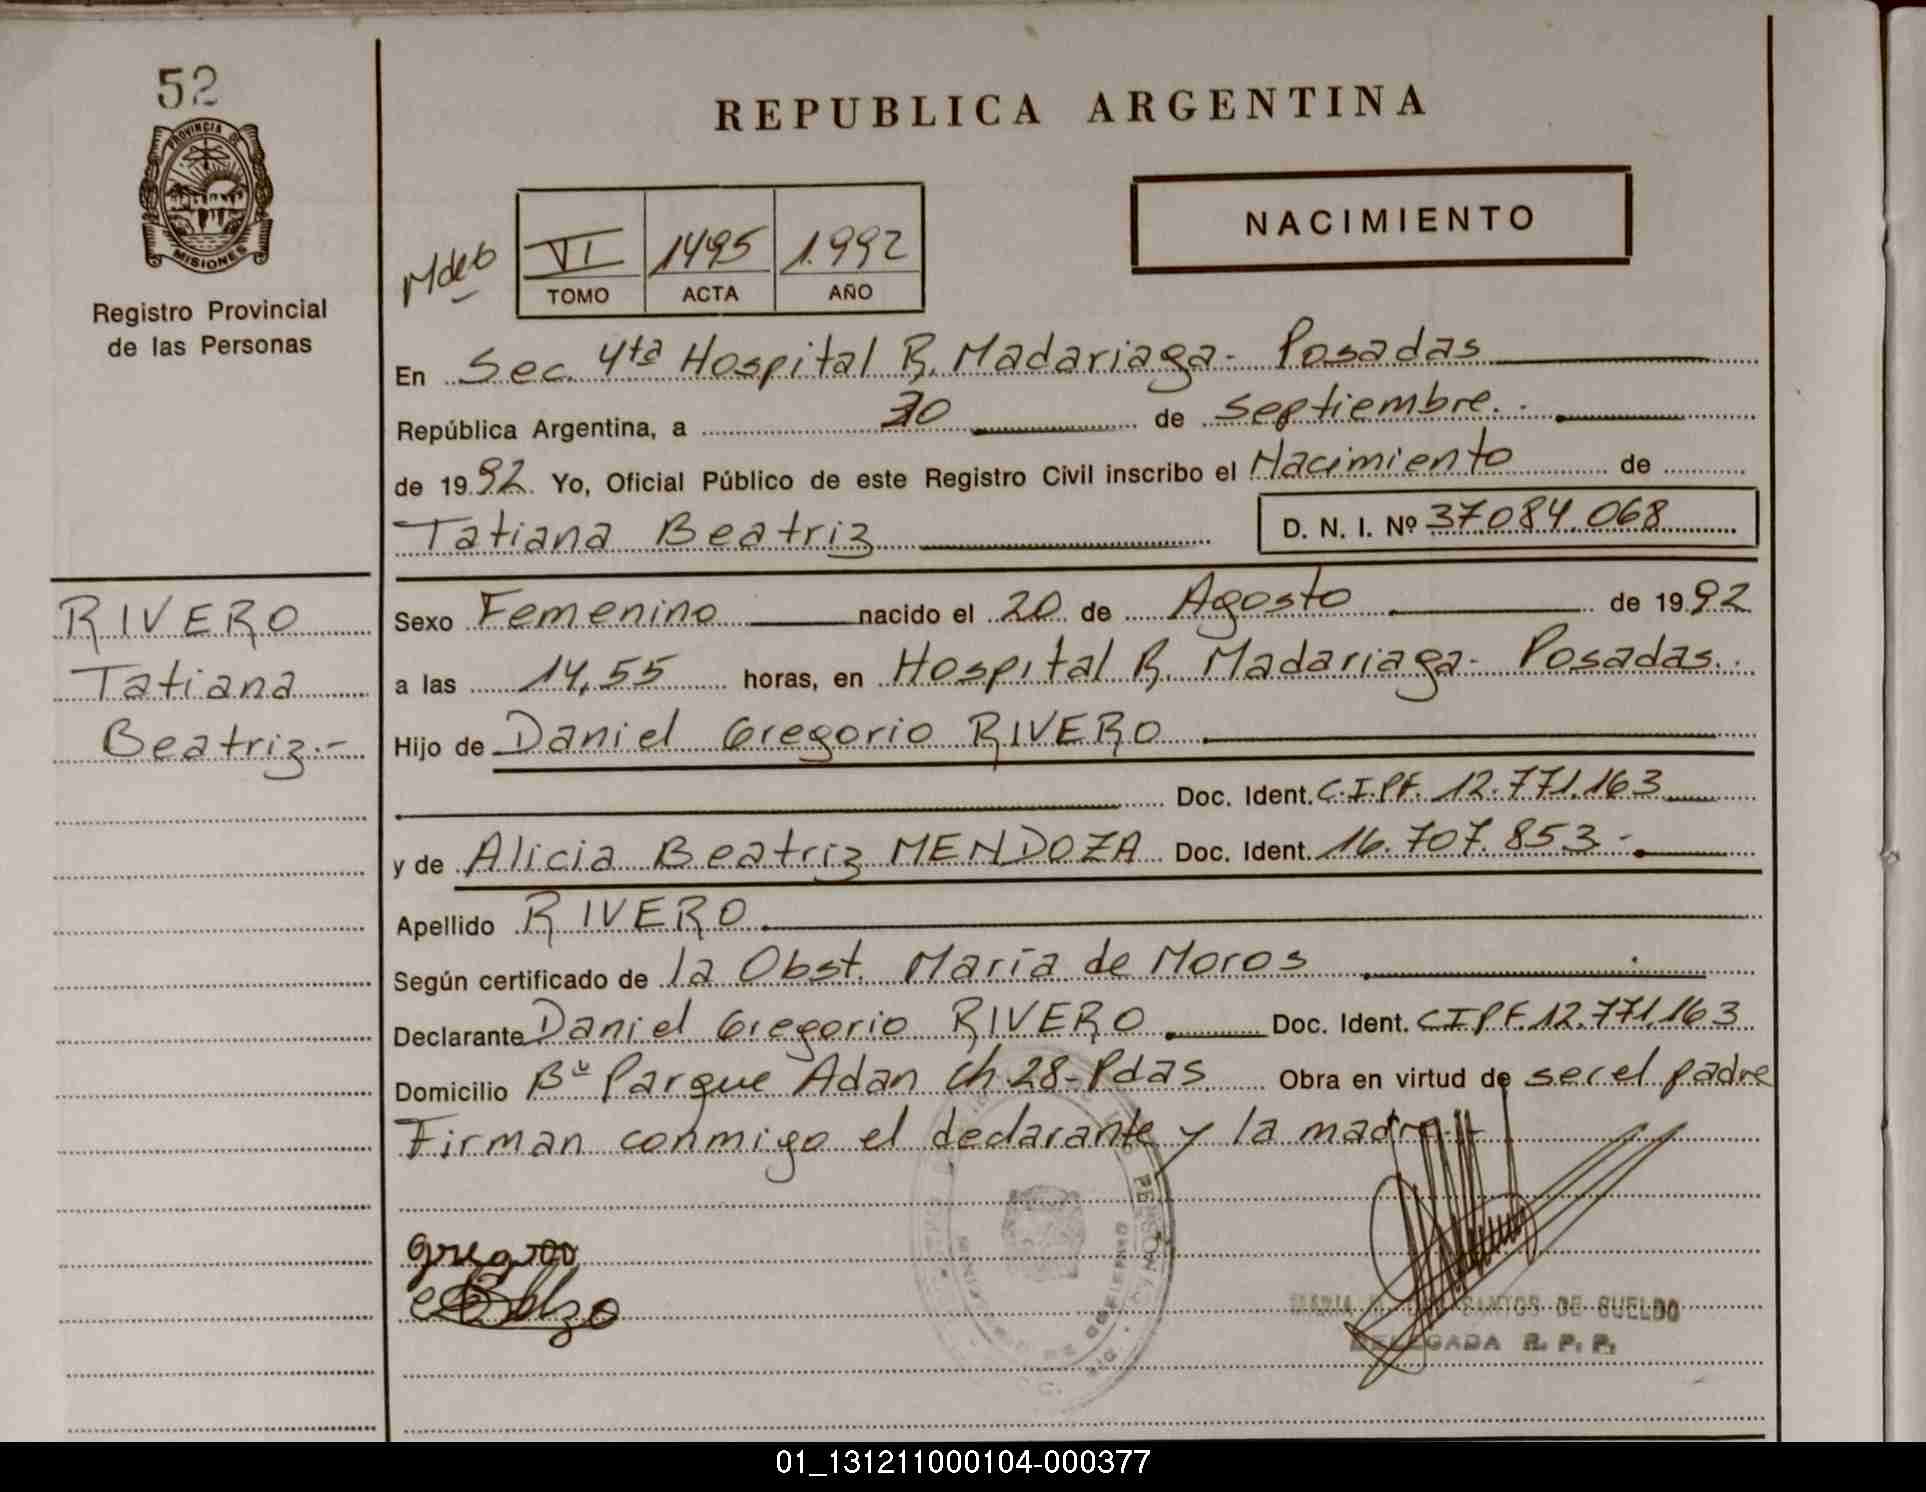 52
PROVINCIA DE
MISIONES
Registro Provincial
de las Personas
RIVERO
Tatiana
Beatriz.-
REPUBLICA ARGENTINA
NACIMIENTO
VI 1495 1.992
TOMO ACTA AÑO
En Sec. 4ta Hospital R. Madariaga- Posadas
República Argentina, a de Septiembre.
de 1992 Yo, Oficial Público de este Registro Civil inscribo el Nacimiento de
Tatiana Beatriz D. N. I. Nº 37.084.068
Sexo Femenino nacido el 20 de Agosto de 1992
a las 14,55 horas, en Hospital R. Madariaga- Posadas.
Hijo de Daniel Gregorio RIVERO
Doc. Ident. C.I.P.F. 12.771.163
y de Alicia Beatriz MENDOZA Doc. Ident. 16.707.853.-
Apellido RIVERO
Según certificado de la Obst. María de Moros
Declarante Daniel Gregorio RIVERO Doc. Ident. CIPF.12.771.163
Domicilio Bº Parque Adan Ch 28-Pdas Obra en virtud de ser el padre
Firman conmigo el declarante y la madre.-
SANTOS DE SUELDO
DELEGADA R. P. P.
01_131211000104-000377